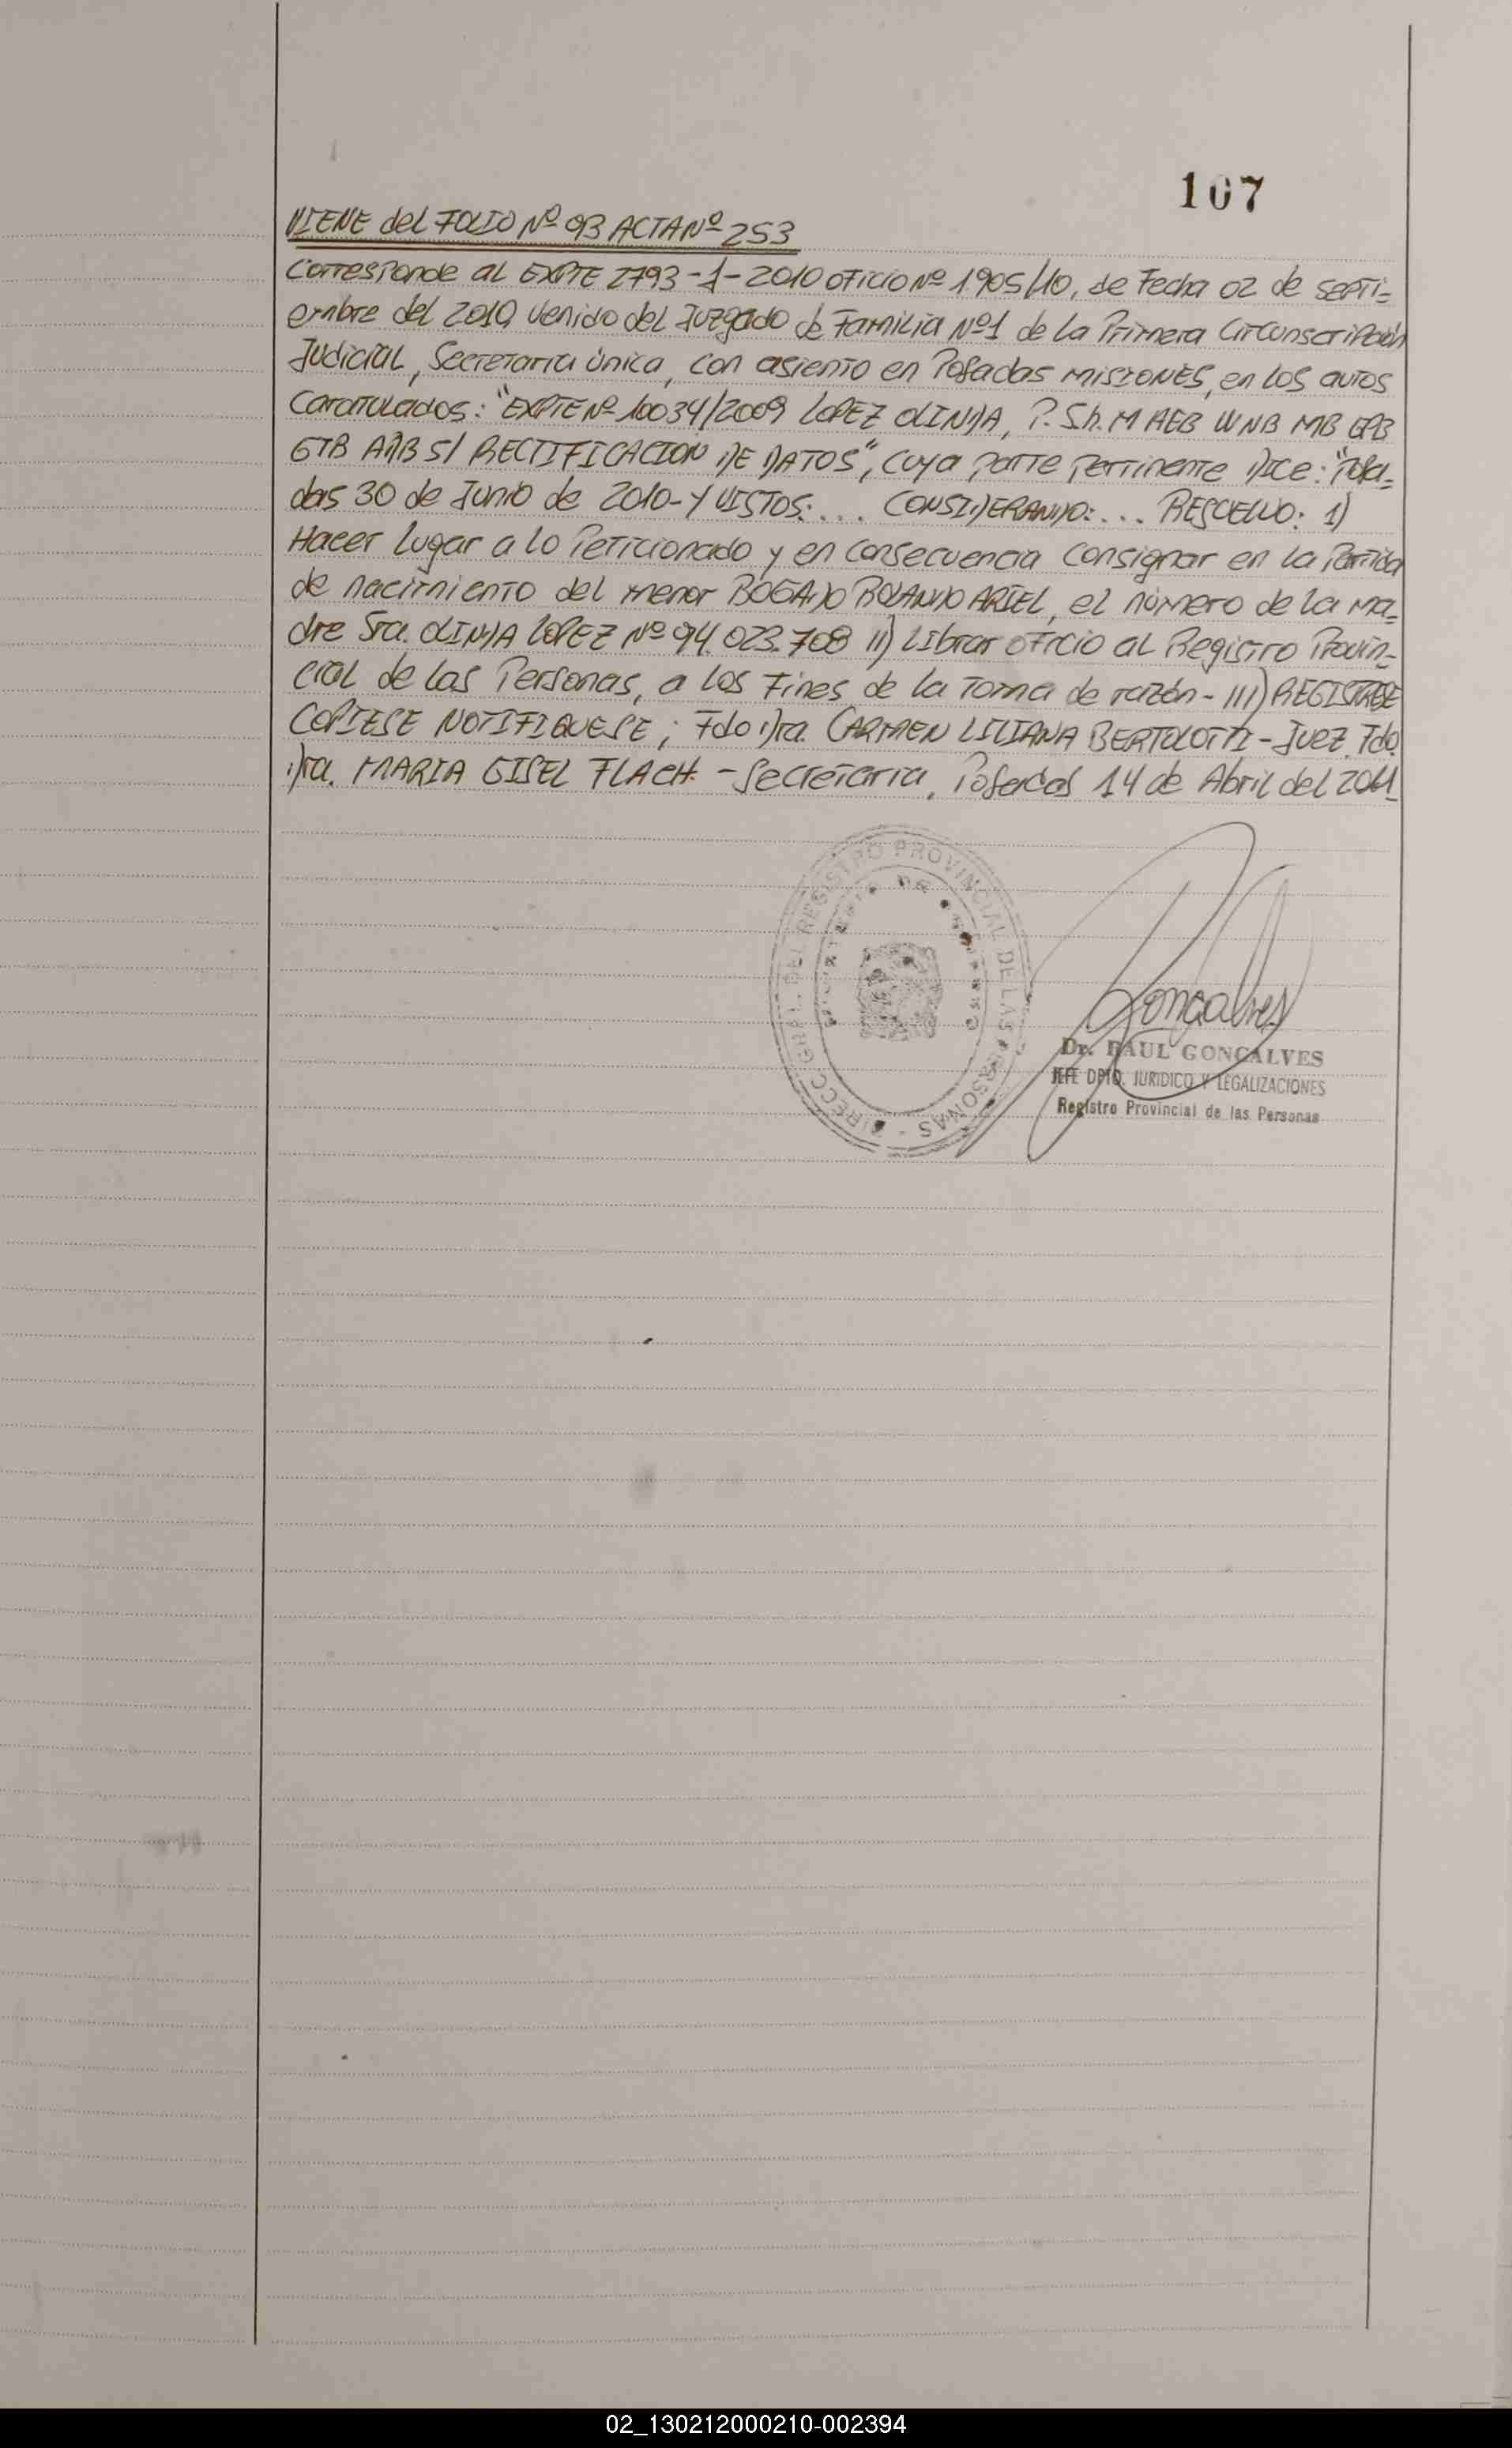 107
VIENE del FOLIO Nº 93 ACTA Nº 253
Corresponde al EXPTE 2793-1-2010 oficio Nº 1905/10, de Fecha 02 de septi-
embre del 2010, venido del Juzgado de Familia Nº1 de la Primera Circunscripción
Judicial, Secretaria Única, con asiento en Posadas MISIONES, en los autos
Caratulados: "EXPTE Nº 10034/2009 LOPEZ OLINDA, P. Sh. M AEB WNB MB GPB
GTB ARB S/ RECTIFICACION DE DATOS", cuya parte pertinente Dice: "Posa-
das 30 de Junio de 2010-Y VISTOS:... CONSIDERANDO:... RESUELVO: 1)
Hacer lugar a lo Peticionado y en consecuencia consignar en la Partida
de nacimiento del menor BOGADO ROLANDO ARIEL, el número de la ma-
dre Sra. OLINDA LOPEZ Nº 94.023.708 II) Librar oficio al Registro Provin-
cial de las Personas, a los Fines de la Toma de razón- III) REGISTRESE
COPIESE NOTIFIQUESE; Fdo Dra CARMEN LILIANA BERTOLOTTI-Juez. Fdo.
Dra. MARIA GISEL FLACH.-Secretaria, Posadas 14 de Abril del 2011
DIRECC GRAL. DEL REGISTRO PROVINCIAL DE LAS PERSONAS -
Goncalves
Dr. RAUL GONCALVES
JEFE DPTO. JURIDICO Y LEGALIZACIONES
Registro Provincial de las Personas
02_130212000210-002394